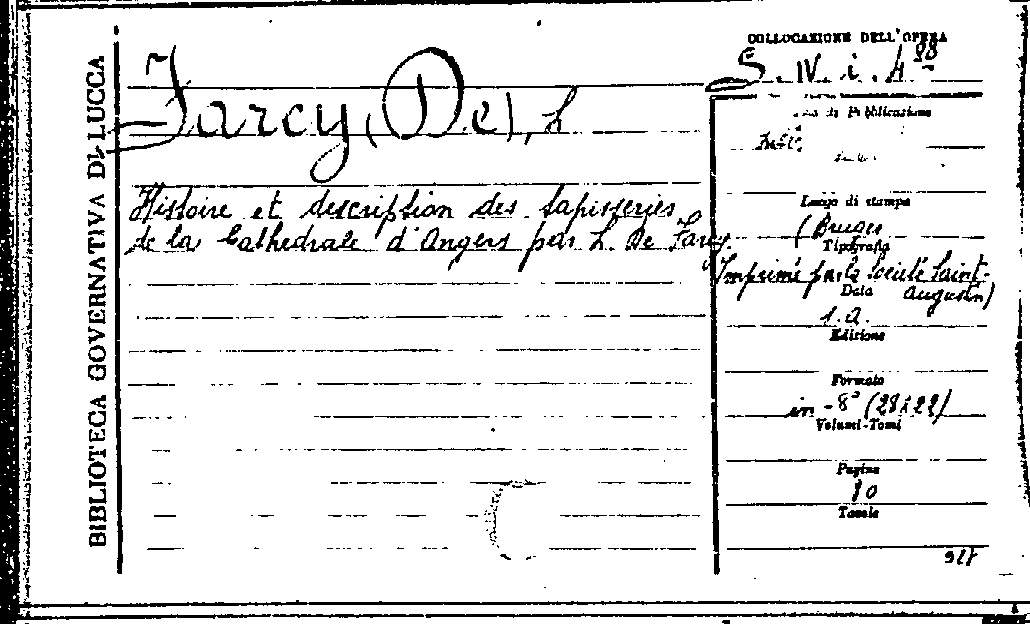 BIBLIOTECA GOVERNATIVA DI LUCCA
Farcy (De), L
Histoire et description des tapisseries
de la Cathedrale d'Angers par L. De Farcy.
COLLOCAZIONE DELL'OPERA
S. IV. i. A 88
di Pubblicazione
Luogo di stampa
(Bruges
Tipografia
Imprimé par la Société Saint-
Augustin)
Data
s. a.
Edizione
Formato
in-8° (28x22)
Volumi-Tomi
Pagine
80
Tavole